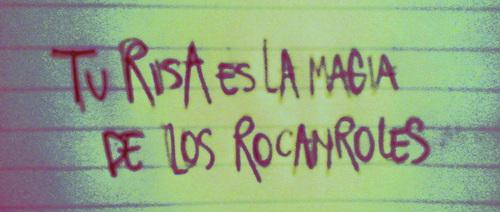 TU RISA ES LA MAGIA
DE LOS ROCANROLES